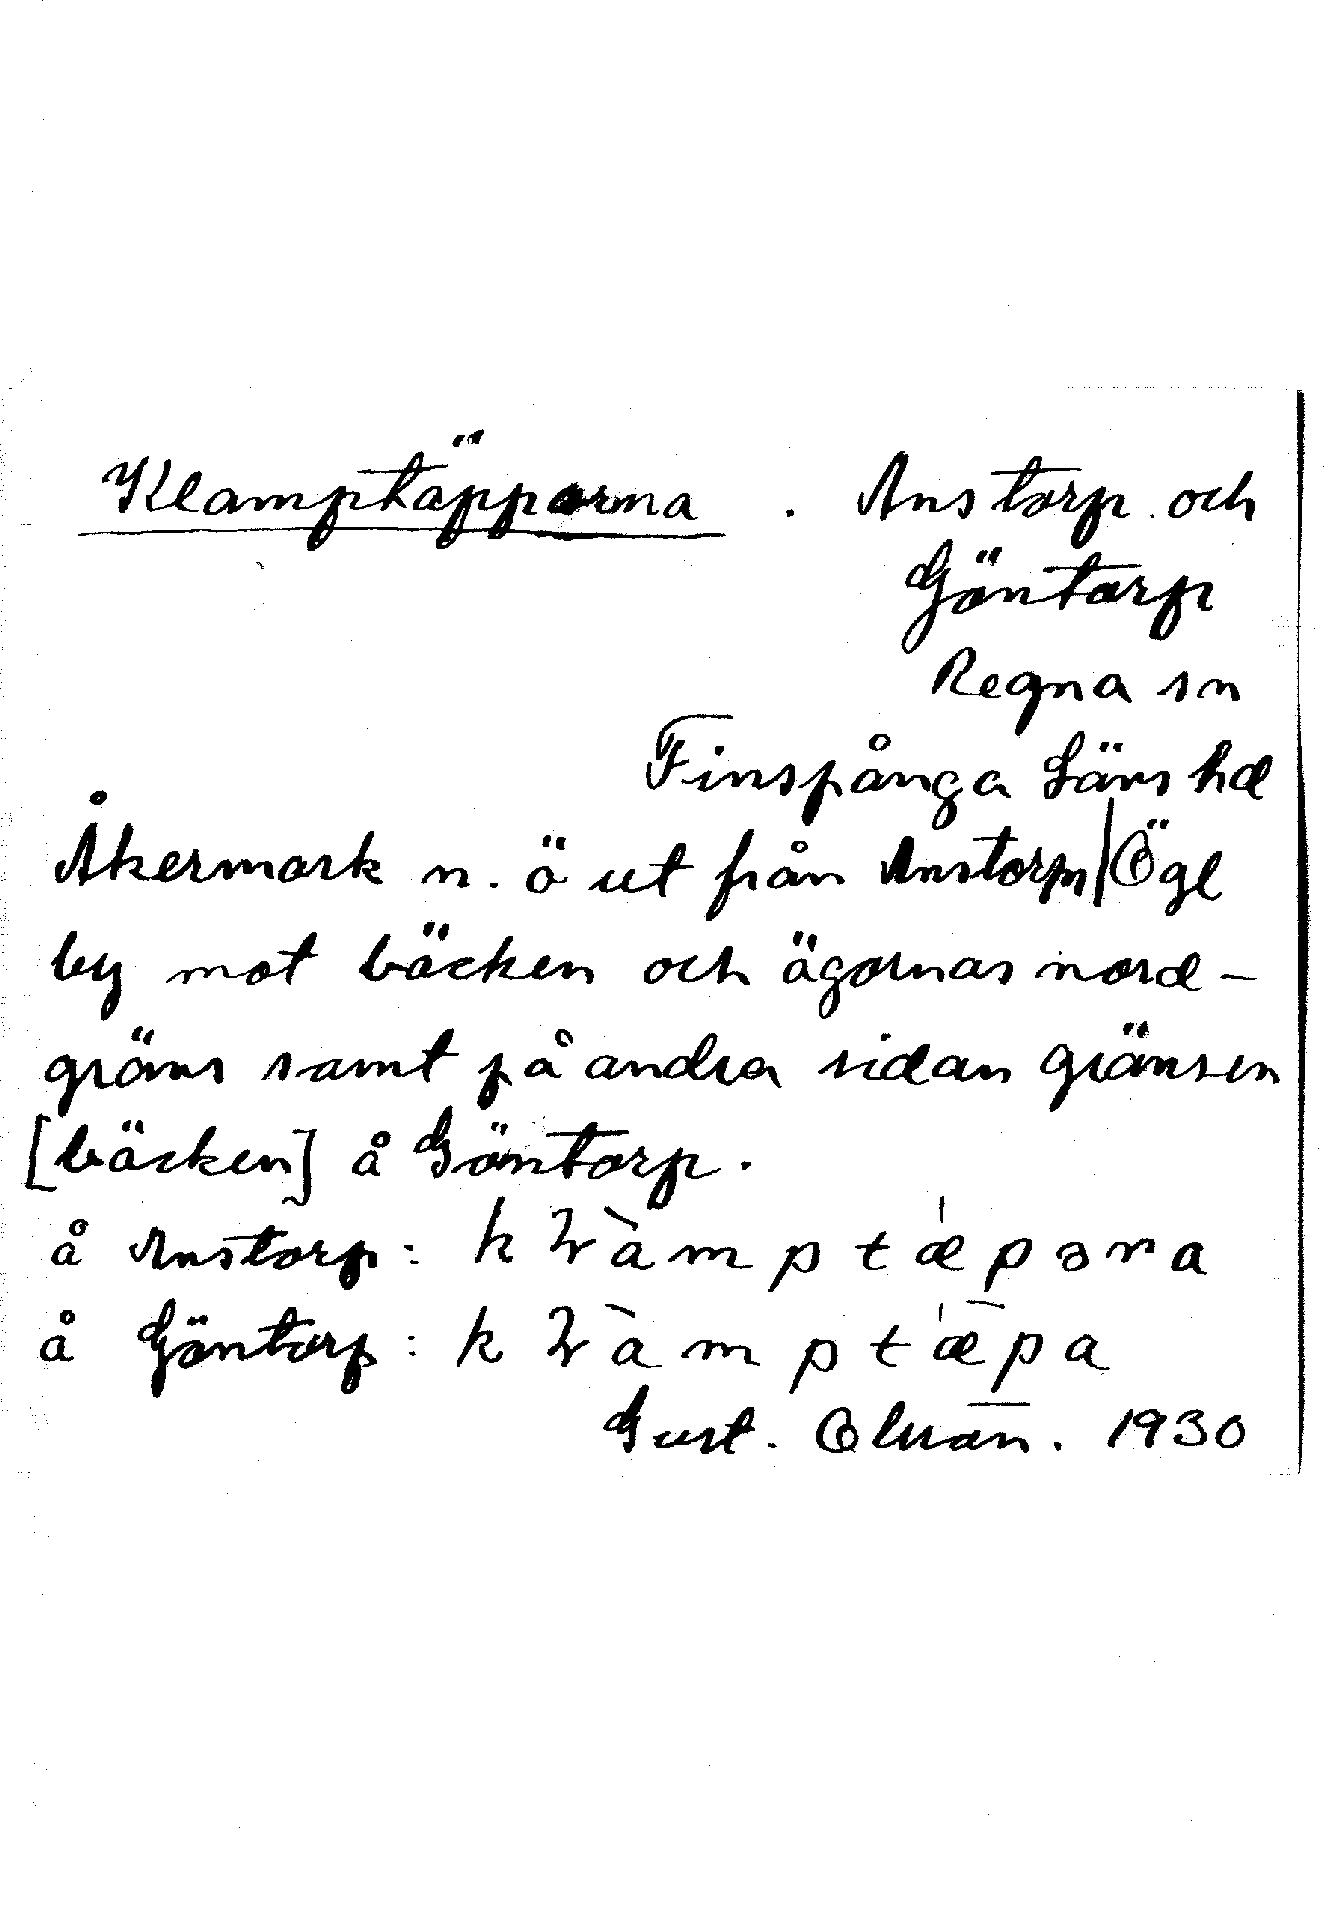 Klamptäpporna . Anstorp och
Göntorp
Regna sn
Finspånga Läns hd
Åkermark n. ö ut från Anstorps| Ögl
by mot bäcken och ägornas nord-
gräns samt på andra sidan gränsen
[bäcken] å Göntorp.
å Anstorp: k àmptæpəra
å Göntorp: k àmptæpa
Gust. 1930